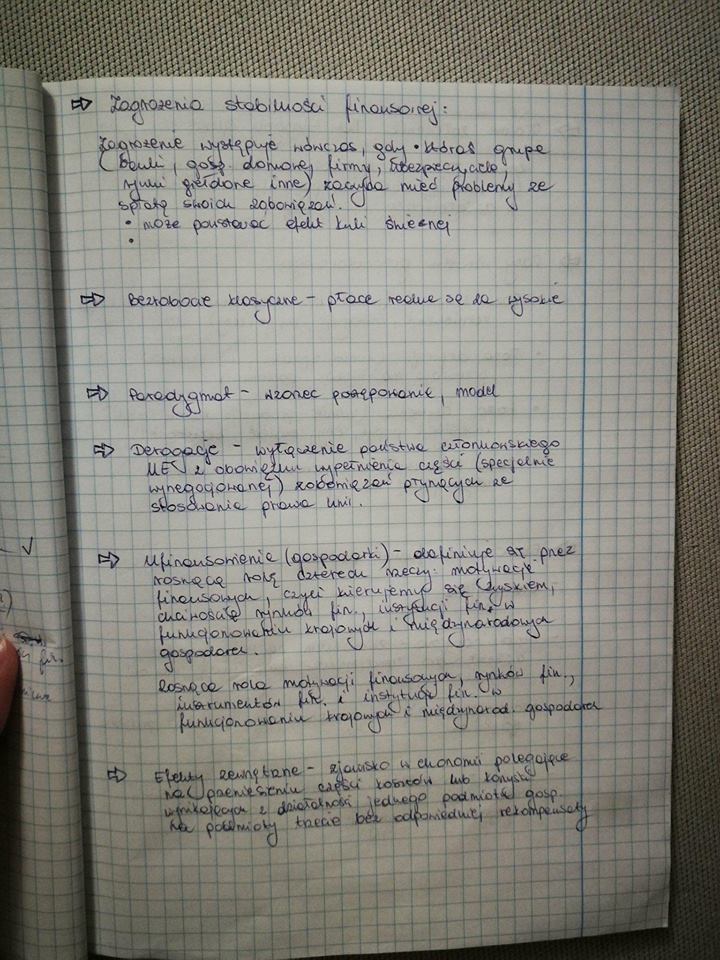 ⇒ Zagrożenia stabilności finansowej:
Zagrożenie występuje wówczas, gdy • któraś grupa
(banki, gosp. domowe, firmy, ubezpieczyciele,
rynki giełdowe inne) zaczyna mieć problemy ze
spłatą swoich zobowiązań.
• może powstawać efekt kuli śnieżnej
•
⇒ Bezrobocie klasyczne – płace realne są za wysokie
⇒ Paradygmat – wzorzec postępowania, model
⇒ Derogacje – wyłączenie państwa członkowskiego
UE z obowiązku wypełnienia części (specjalnie
wynegocjowanej) zobowiązań płynących ze
stosowania prawa unii.
⇒ Ufinansowienie (gospodarki) – definiuje się przez
rosnącą rolę czterech rzeczy: motywacje
finansowych, czyli kierujemy się zyskiem,
rynków fin., instytucji fin. w
funkcjonowaniu krajowych i międzynarodowych
gospodarek.
Rosnąca rola motywacji finansowych, rynków fin.,
instrumentów fin. i instytucji fin. w
funkcjonowaniu krajowych i międzynarod. gospodarek
⇒ Efekty zewnętrzne – zjawisko w ekonomii polegające
na przeniesieniu części kosztów lub korzyści
wynikających z działalności jednego podmiotu gosp.
na podmioty trzecie bez odpowiedniej rekompensaty